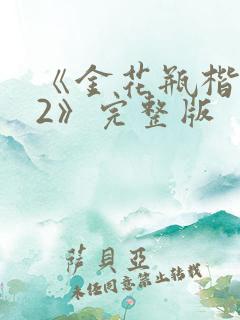 《金花瓶楷
2》完整版
萨貝亞
未经同意禁止转载